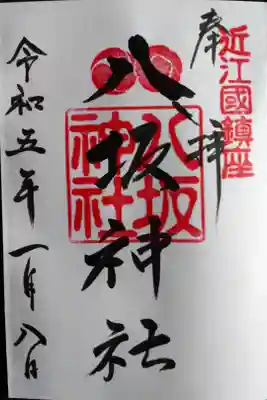 近江國鎮座
奉拝
八坂神社
八坂神社
令和五年一月八日